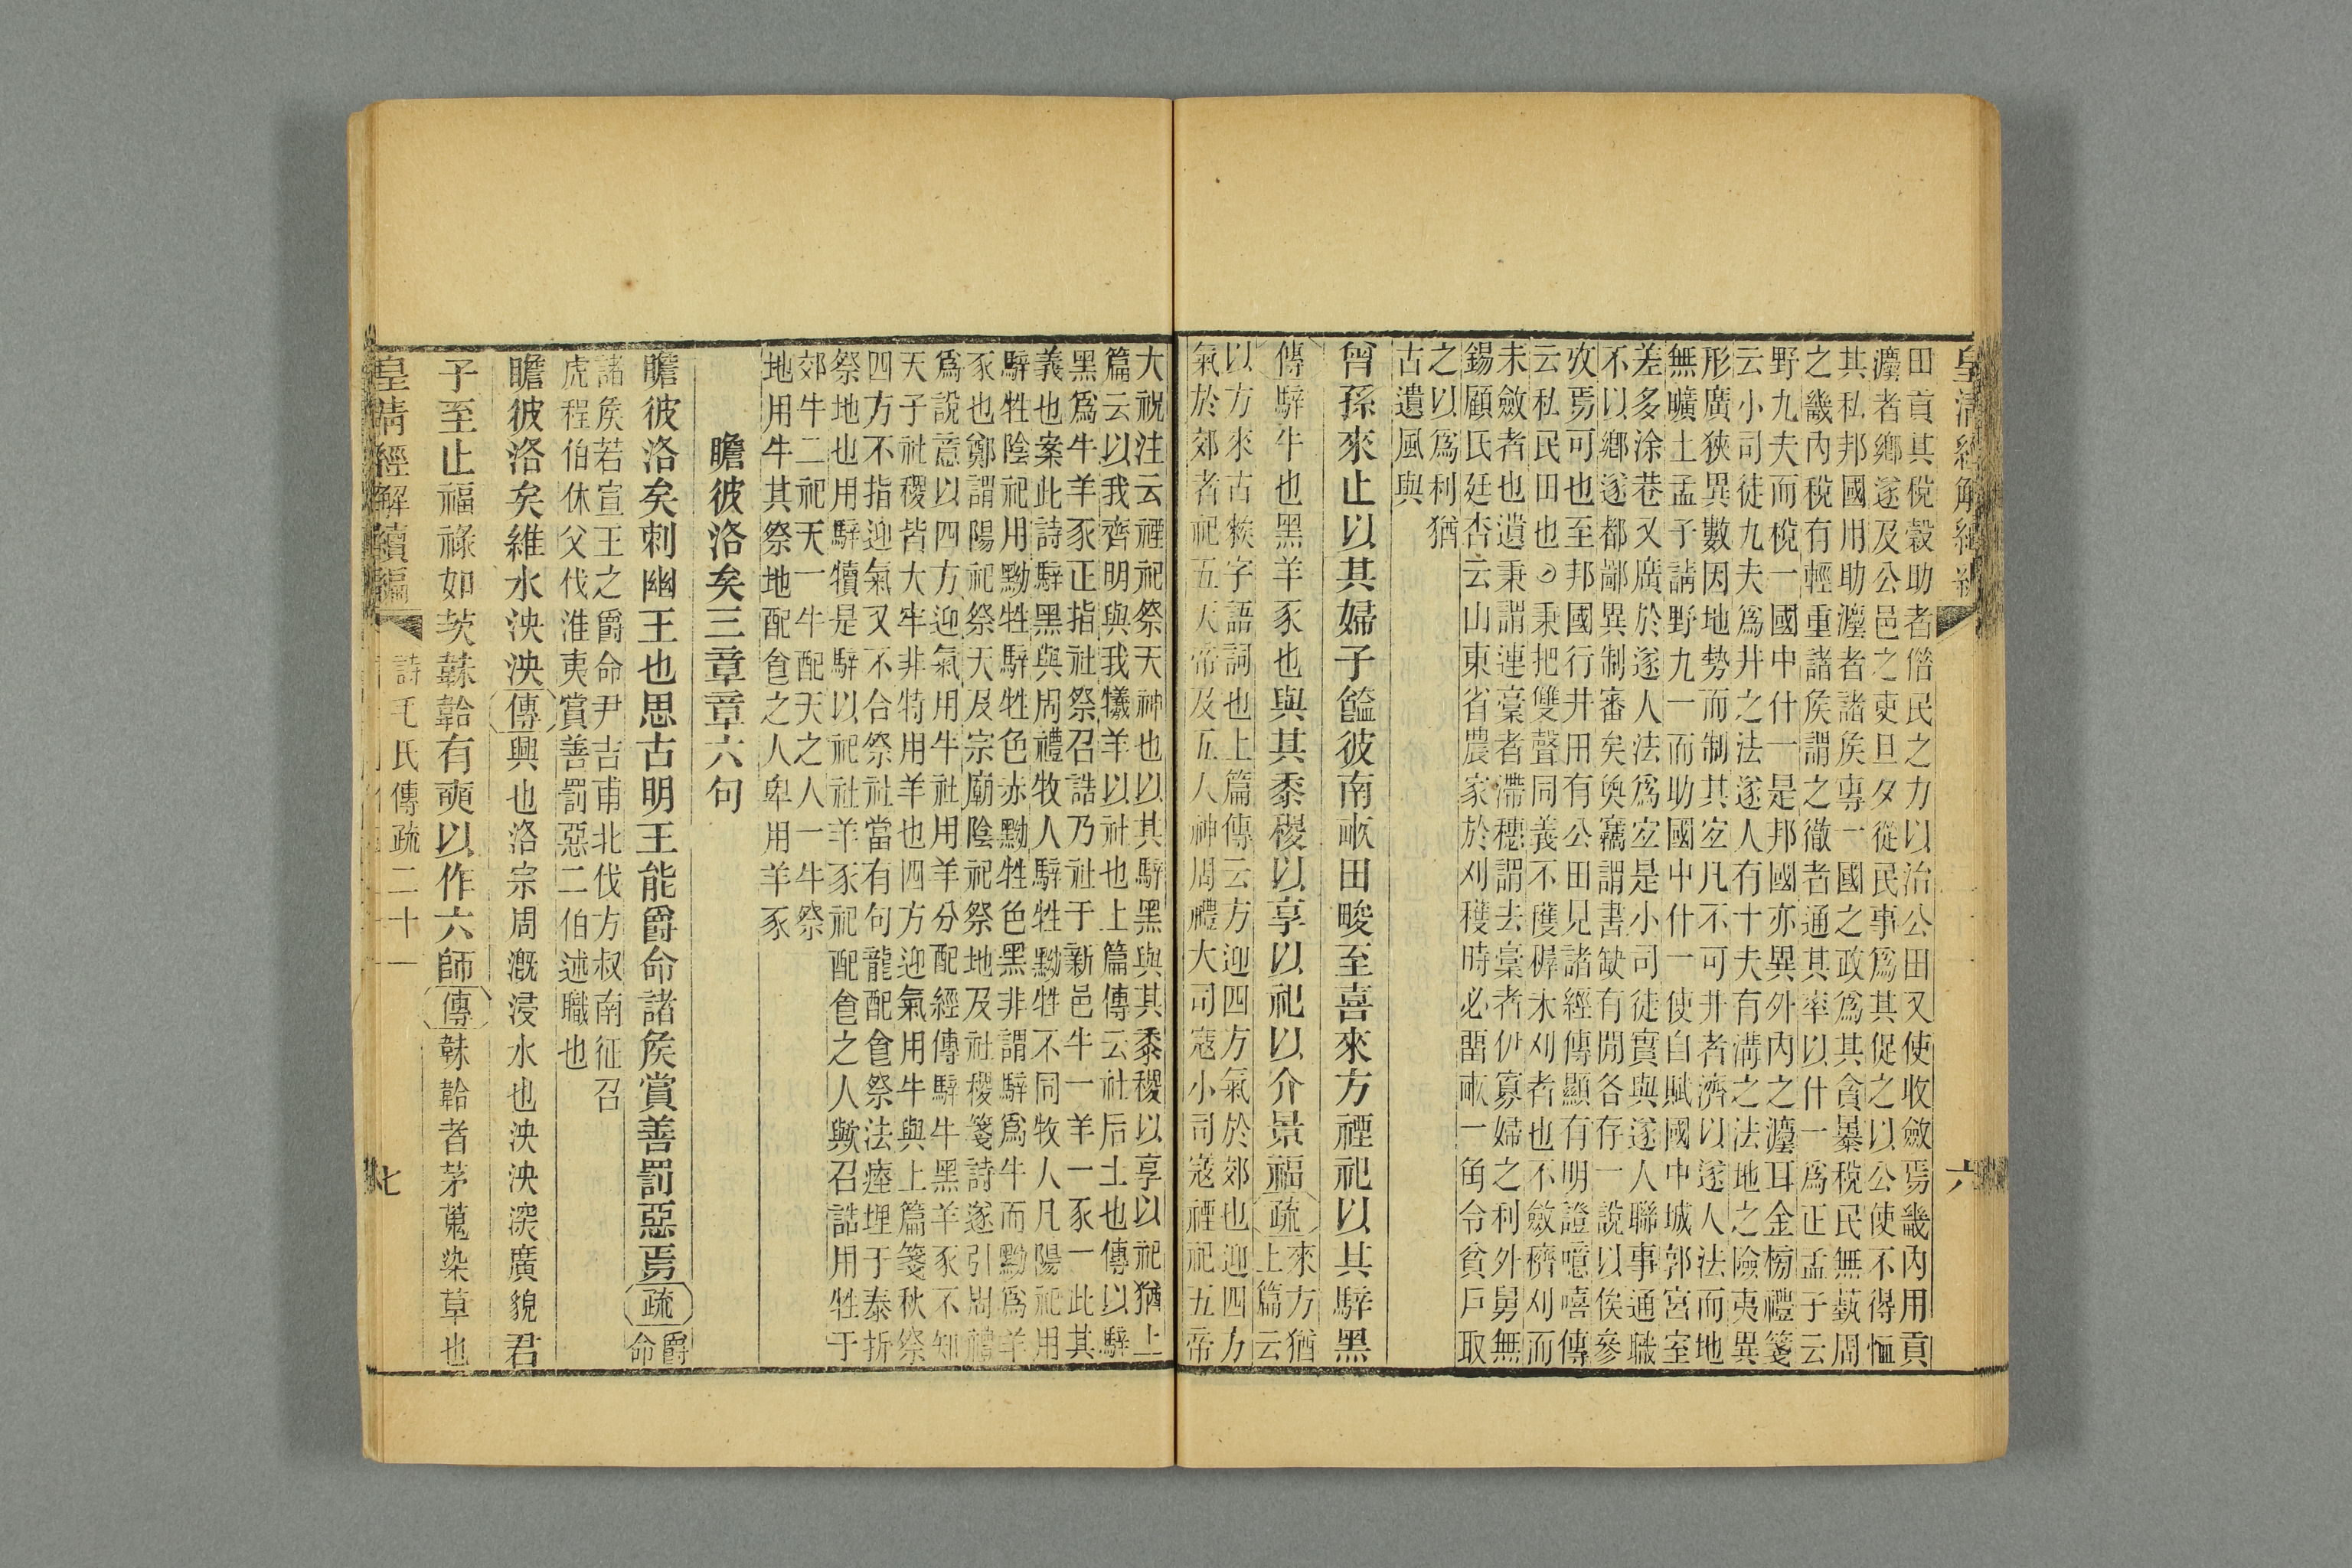 田貢其稅穀助者僭民之力以治公田又使收斂焉畿內用貢
灋者鄉遂及公邑之吏旦夕從民事爲其促之以公使不得恤
其私邦國用助灋者諸矦專一國之政爲其貪暴稅民無蓺周
之畿內稅有輕重諸矦謂之徹者通其率以什一爲正孟子云
野九夫而稅一國中什一是邦國亦異外內之灋耳金榜禮箋
云小司徒九夫爲井之法遂人有十夫有溝之法地之險夷異
形廣狹異數因地勢而制其宐凡不可井者濟以遂人法而地
無曠土孟子請野九一而助國中什一使自賦國中城郭宮室
差多涂巷又廣於遂人法爲宐是小司徒實與遂人聯事通職
不以鄉遂都鄙異制審矣奐竊謂書缺有閒各存一說以俟參
攷焉可也至邦國行井田有公田見諸經傳顯有明證噫嘻傳
云私民田也秉把雙聲同義不穫穉未刈者也不斂穧刈而
未斂者也遺秉謂連稾者滯穗謂去稾者仍寡婦之利外舅無
錫顧氏廷杏云山東省農家於刈穫時必畱畞一角令貧戶取
之以爲利猶
古遺風與
曾孫來止以其婦子饁彼南畞田畯至喜來方禋祀以其騂黑
傳騂牛也黑羊豕也與其黍稷以享以祀以介景福疏來方猶
上篇云
以方來古候字語詞也上篇傳云方迎四方氣於郊也迎四方
氣於郊者祀五天帝及五人神周禮大司寇小司寇禋祀五帝
大祝注云禋祀祭天神也以其騂黑與其黍稷以享以祀猶上
篇云以我齊明與我犧羊以社也上篇傳云社后土也傳以騂
黑爲牛羊豕正指社祭召誥乃社于新邑牛一羊一豕一此其
義也案此詩騂黑與周禮牧人騂牲黝牲不同牧人凡陽祀用
騂牲陰祀用黝牲騂牲色赤黝牲色黑非謂騂爲牛而黝爲羊
豕也鄭謂陽祀祭天及宗廟陰祀祭地及社稷箋詩遂引周禮
爲說意以四方迎氣用牛社用羊分配經傳騂牛黑羊豕不知
天子社稷皆大牢非特用羊也四方迎氣用牛與上篇箋秋祭
四方不指迎氣又不合祭社當有句龍配食祭法瘞埋于泰折
祭地也用騂犢是騂以祀社羊豕祀配食之人歟召誥用牲于
郊牛二祀天一牛配天之人一牛祭
地用牛其祭地配食之人卑用羊豕
瞻彼洛矣三章章六句
瞻彼洛矣刺幽王也思古明王能爵命諸矦賞善罰惡焉疏爵
命
諸矦若宣王之爵命尹吉甫北伐方叔南征召
虎程伯休父伐淮夷賞善罰惡二伯述職也
瞻彼洛矣維水泱泱傳興也洛宗周漑浸水也泱泱深廣貌君
子至止福祿如茨韎韐有奭以作六師傳韎韐者茅蒐染草也
皇淸經解續編
詩毛氏傳疏二十一
七
皇淸經解續編
六